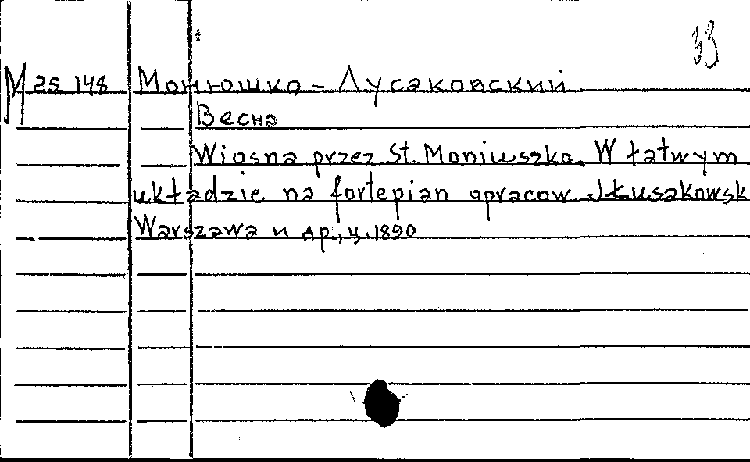 33
M 25 148 Монюшко - Лусаковский
Весна
Wiosna przez St. Moniuszko. W łatwym
układzie na fortepian opracow. J. Łusakowsk
Warszawa и др., ц. 1890